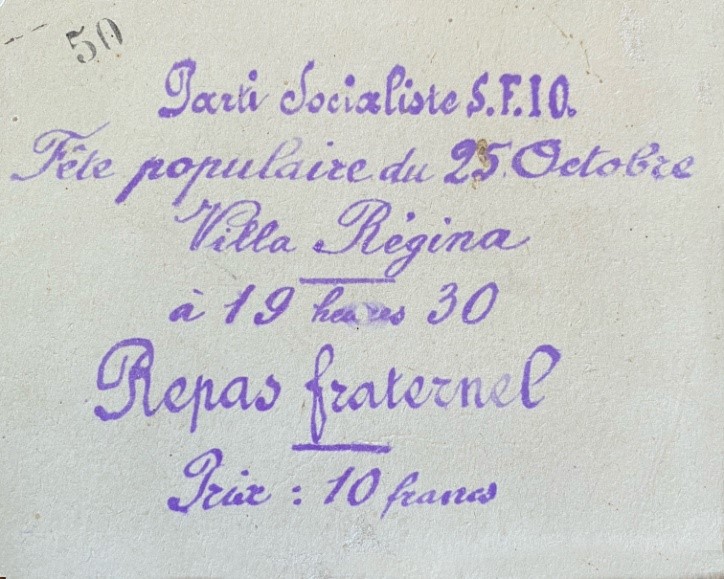 50
Parti Socialiste S.F.I.O.
Fête populaire du 25 Octobre
Villa Régina
à 19 heures 30
Repas fraternel
Prix : 10 francs